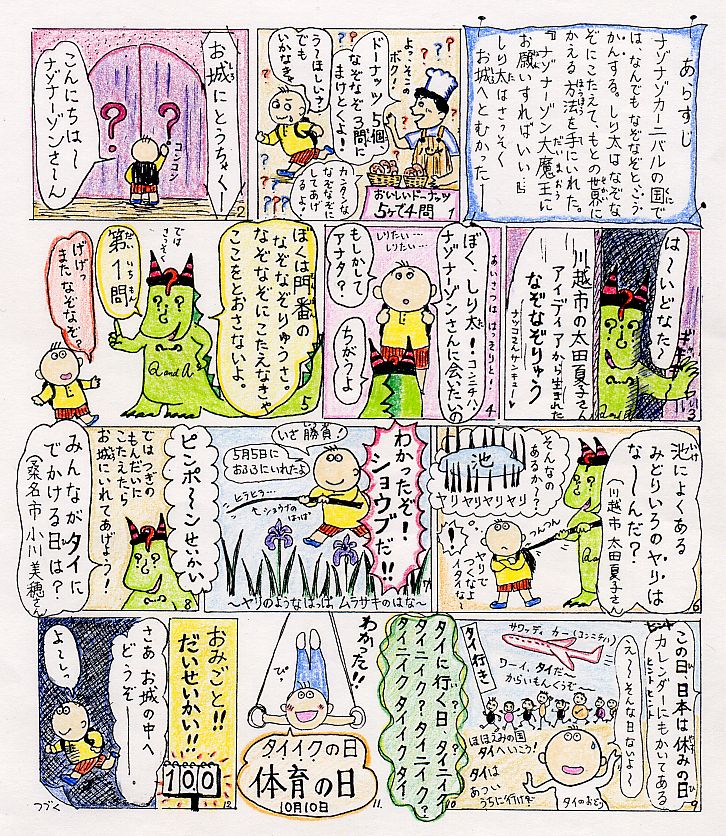 あらすじ
ナゾナゾカーニバルの国で
は、なんでもなぞなぞとごう
かんする。しり太はなぞな
ぞにこたえて、もとの世界に
かえる方法を手にいれた。
『ナゾナーゾン大魔王に
お願いすればいい』
しり太はさっそく
お城へとむかった―
よっ、そこの
ボク!
ドーナッツ5個
なぞなぞ3問に
まけとくよ!
う〜ほしい、でも
いかなきゃ
カンタンな
なぞなぞに
してあげ
るよ!
おいしいドーナッツ
5ツで4問
1
お城にとうちゃく〜
コンコン
こんにちは〜
ナゾナーゾンさ〜ん
2
は〜いどなた〜
ギギギ
川越市の太田夏子さん
アイディアから生まれた
なぞなぞりゅう
ナッコさんサンキュー♥
3
あいさつははっきりと!
ぼく、しり太!コンニチハ
ナゾナーゾンさんに会いたいの
しりたい…
しりたい…
もしかして
アナタ?
ちがうよ
4
ぼくは門番の
なぞなぞりゅうさ。
なぞなぞにこたえなきゃ
ここをとおさないよ。
では
さっそく
第1問
Q and A
げげっ
またなぞなぞ?
5
池によくある
みどりいろのヤリは
な〜んだ?
(川越市 太田夏子さん)
そんなの
あるか〜?
池
ヤリヤリヤリヤリ
つんつん
ヤリで
つくなよ
イタイな〜
!
6
わかったぞ!
ショウブだ!!
いざ勝負!
5月5日に
おふろにいれたよ
ヒラヒラ…
ショウブのはっぱ
〜ヤリのようなはっぱ ムラサキのはな〜
7
ピンポ〜ンせいかい
ではつぎの
もんだいに
こたえたら
お城にいれてあげよう!
みんながタイに
でかける日は?
(桑名市 小川美穂さん)
8
ヒント
この日、日本は休みの日
カレンダーにもかいてある
ヒントヒント
え〜、そんな日ないよ〜
サワッディカー(コンニチハ)
ワーイ、タイだ〜
からいもんくうぞ
タイ行き
ほほえみの国
タイへいこう!
タイは
あつい
うちに行け
タイのおどり
9
タイに行く日、タイニイク
タイニイク?タイニイク?
タイニイク タイイク タイ
10
わかった!!
ぴっ
タイイクの日
体育の日
10月10日
11
おみごと!!
だいせいかい!!
さあ お城の中へ
どうぞ
よ〜しっ
100
12
つづく